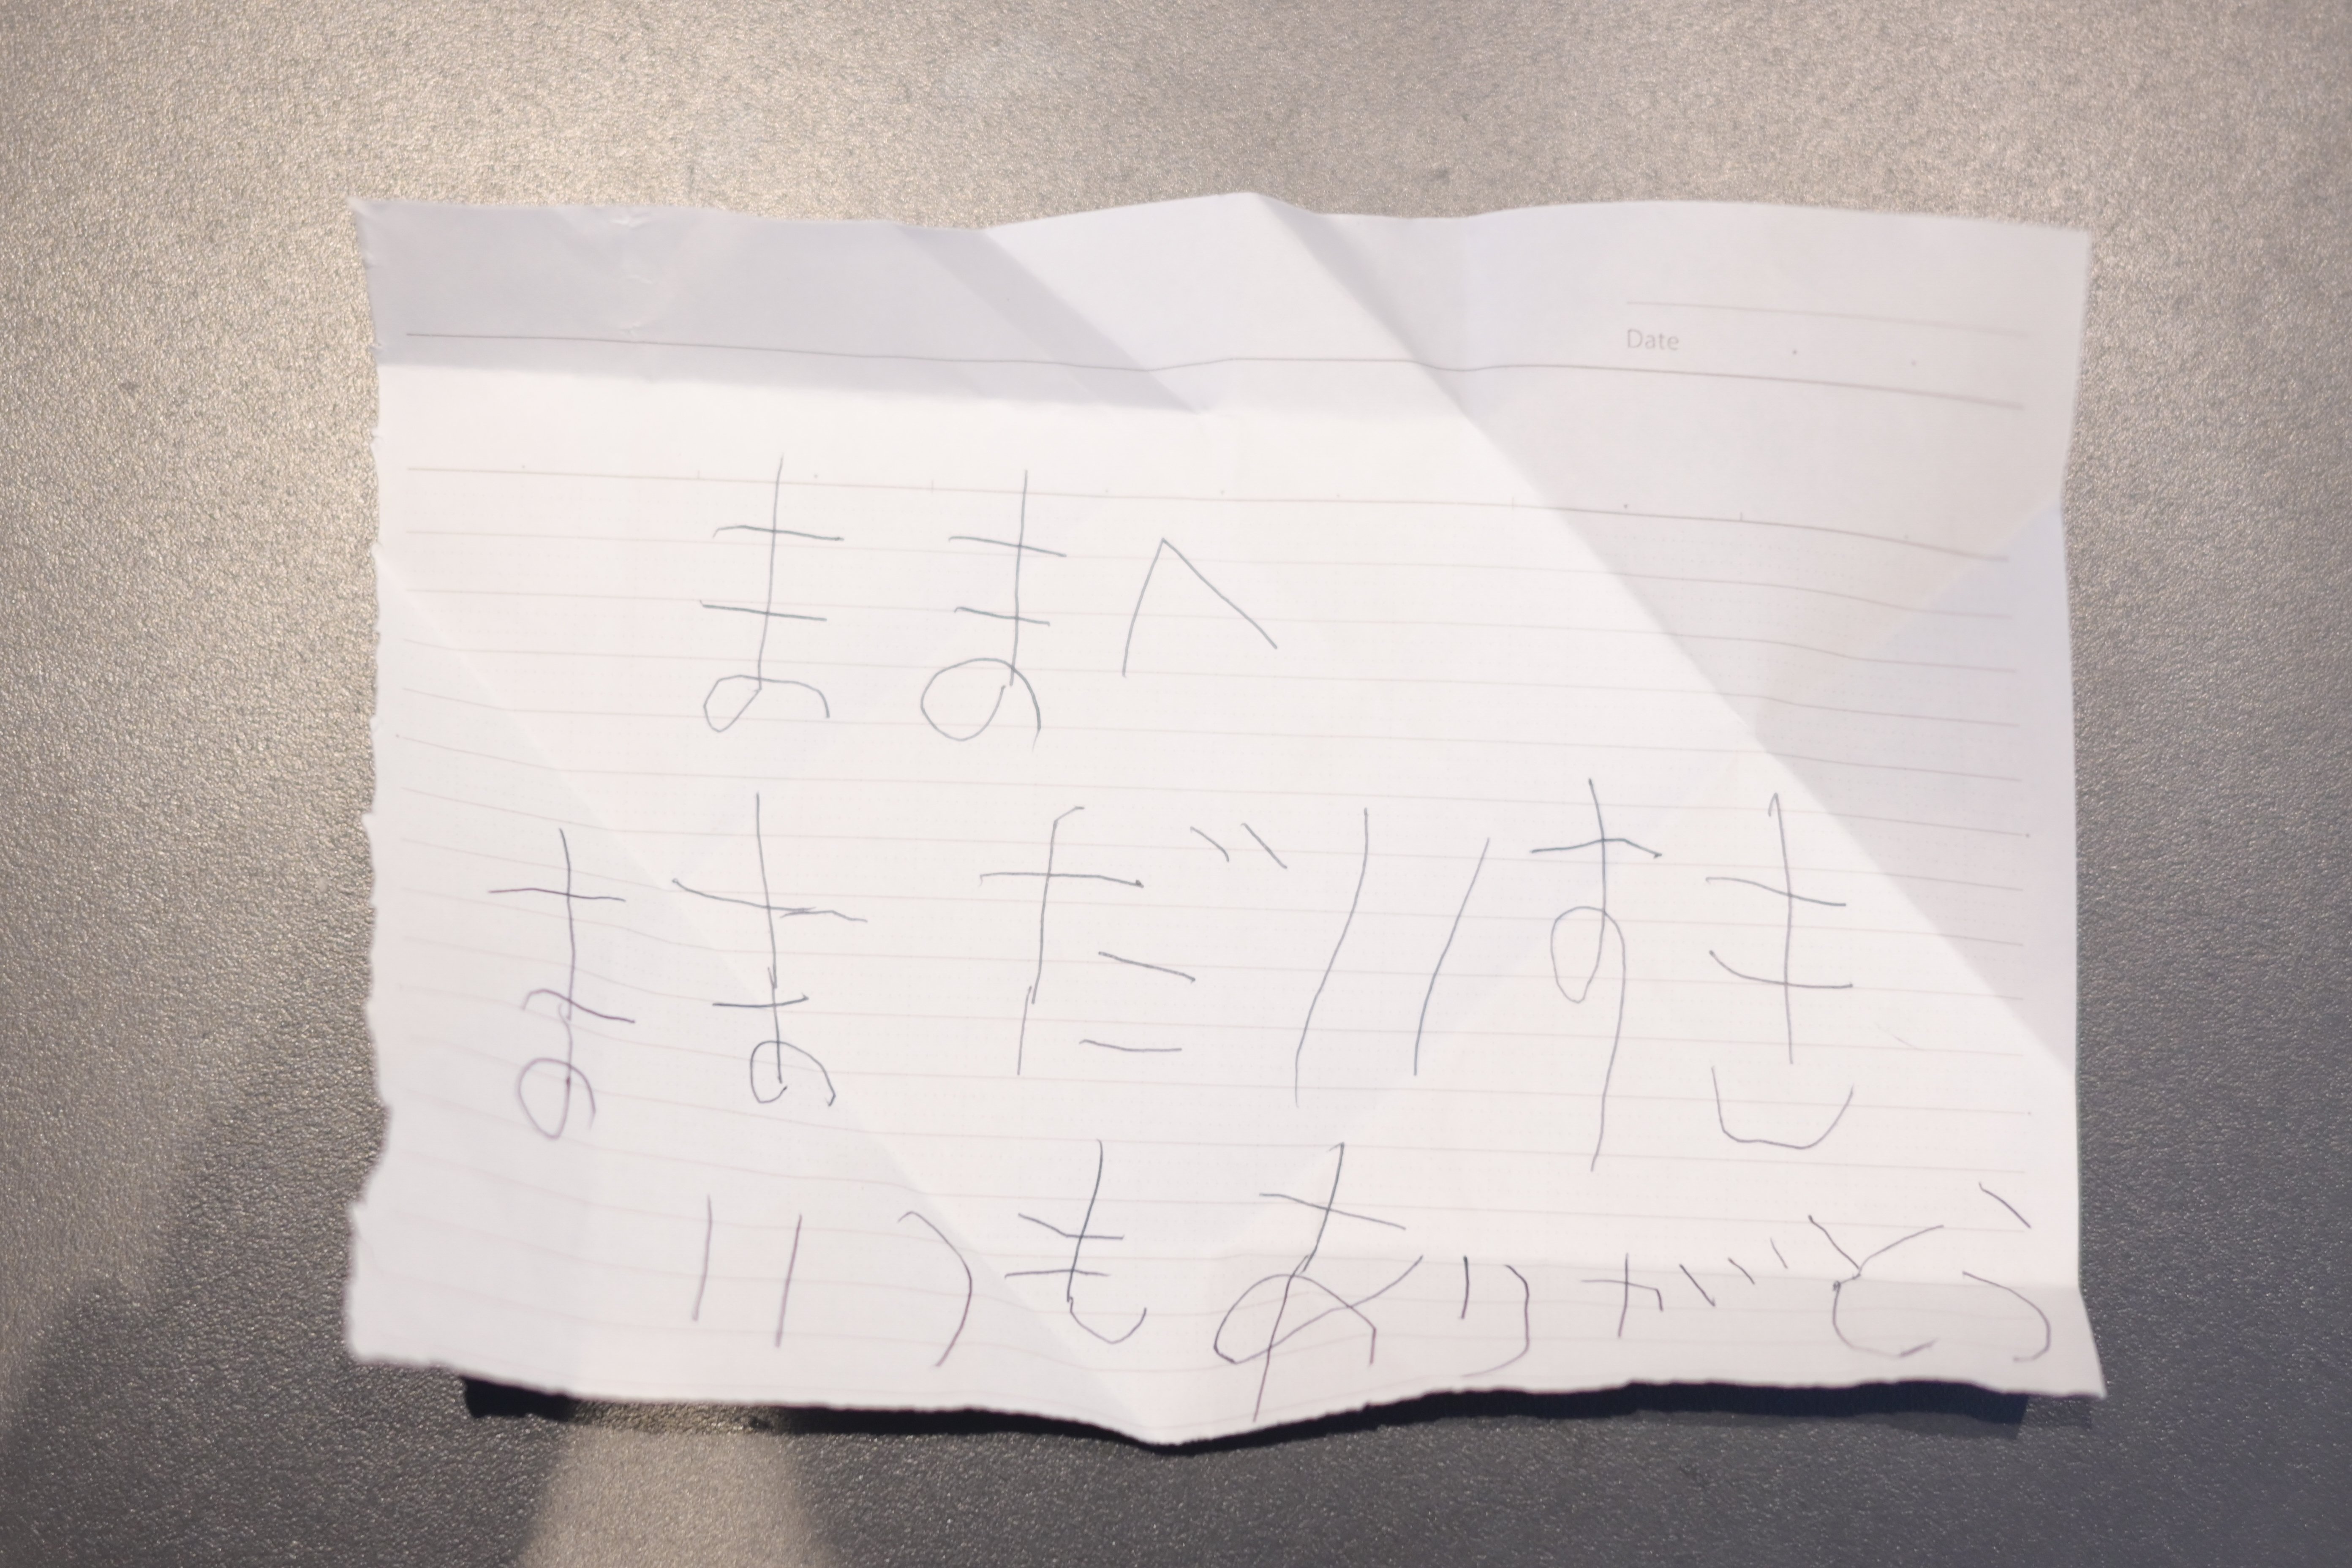 Date
ままへ
まま だいすき
いつもありがとう